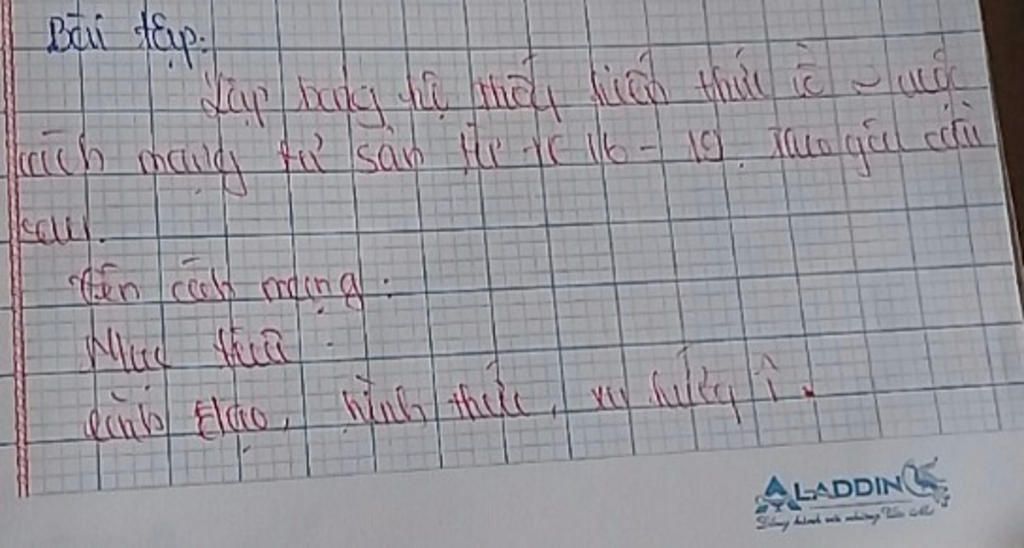 Bài tập:
Lập bảng hệ thống kiến thức về cuộc
cách mạng tư sản từ TK 16 - 19. Theo gợi
sau.
Tên cách mạng.
Mục tiêu
Lãnh đạo, hình thức, ý
ALADDIN